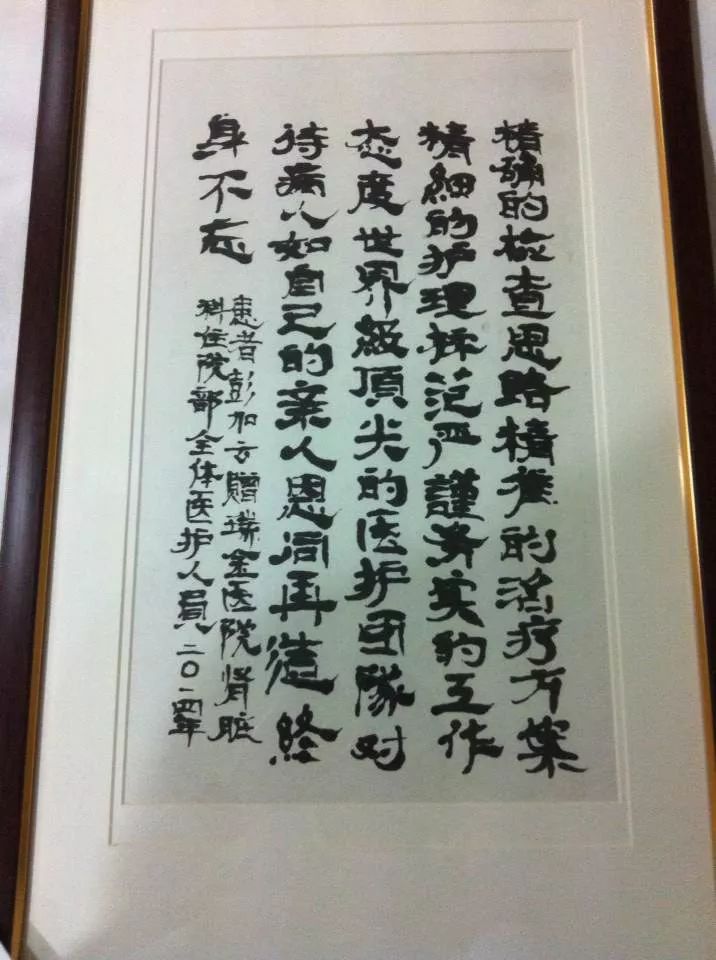 精确的检查思路精准的治疗方案
精細的护理规范严謹务实的工作
态度世界級頂尖的医护团隊对
待病人如自己的亲人恩同再造終
身不忘
患者彭加贈瑞金医院肾脏
科住院部全体医护人员 二〇一四年